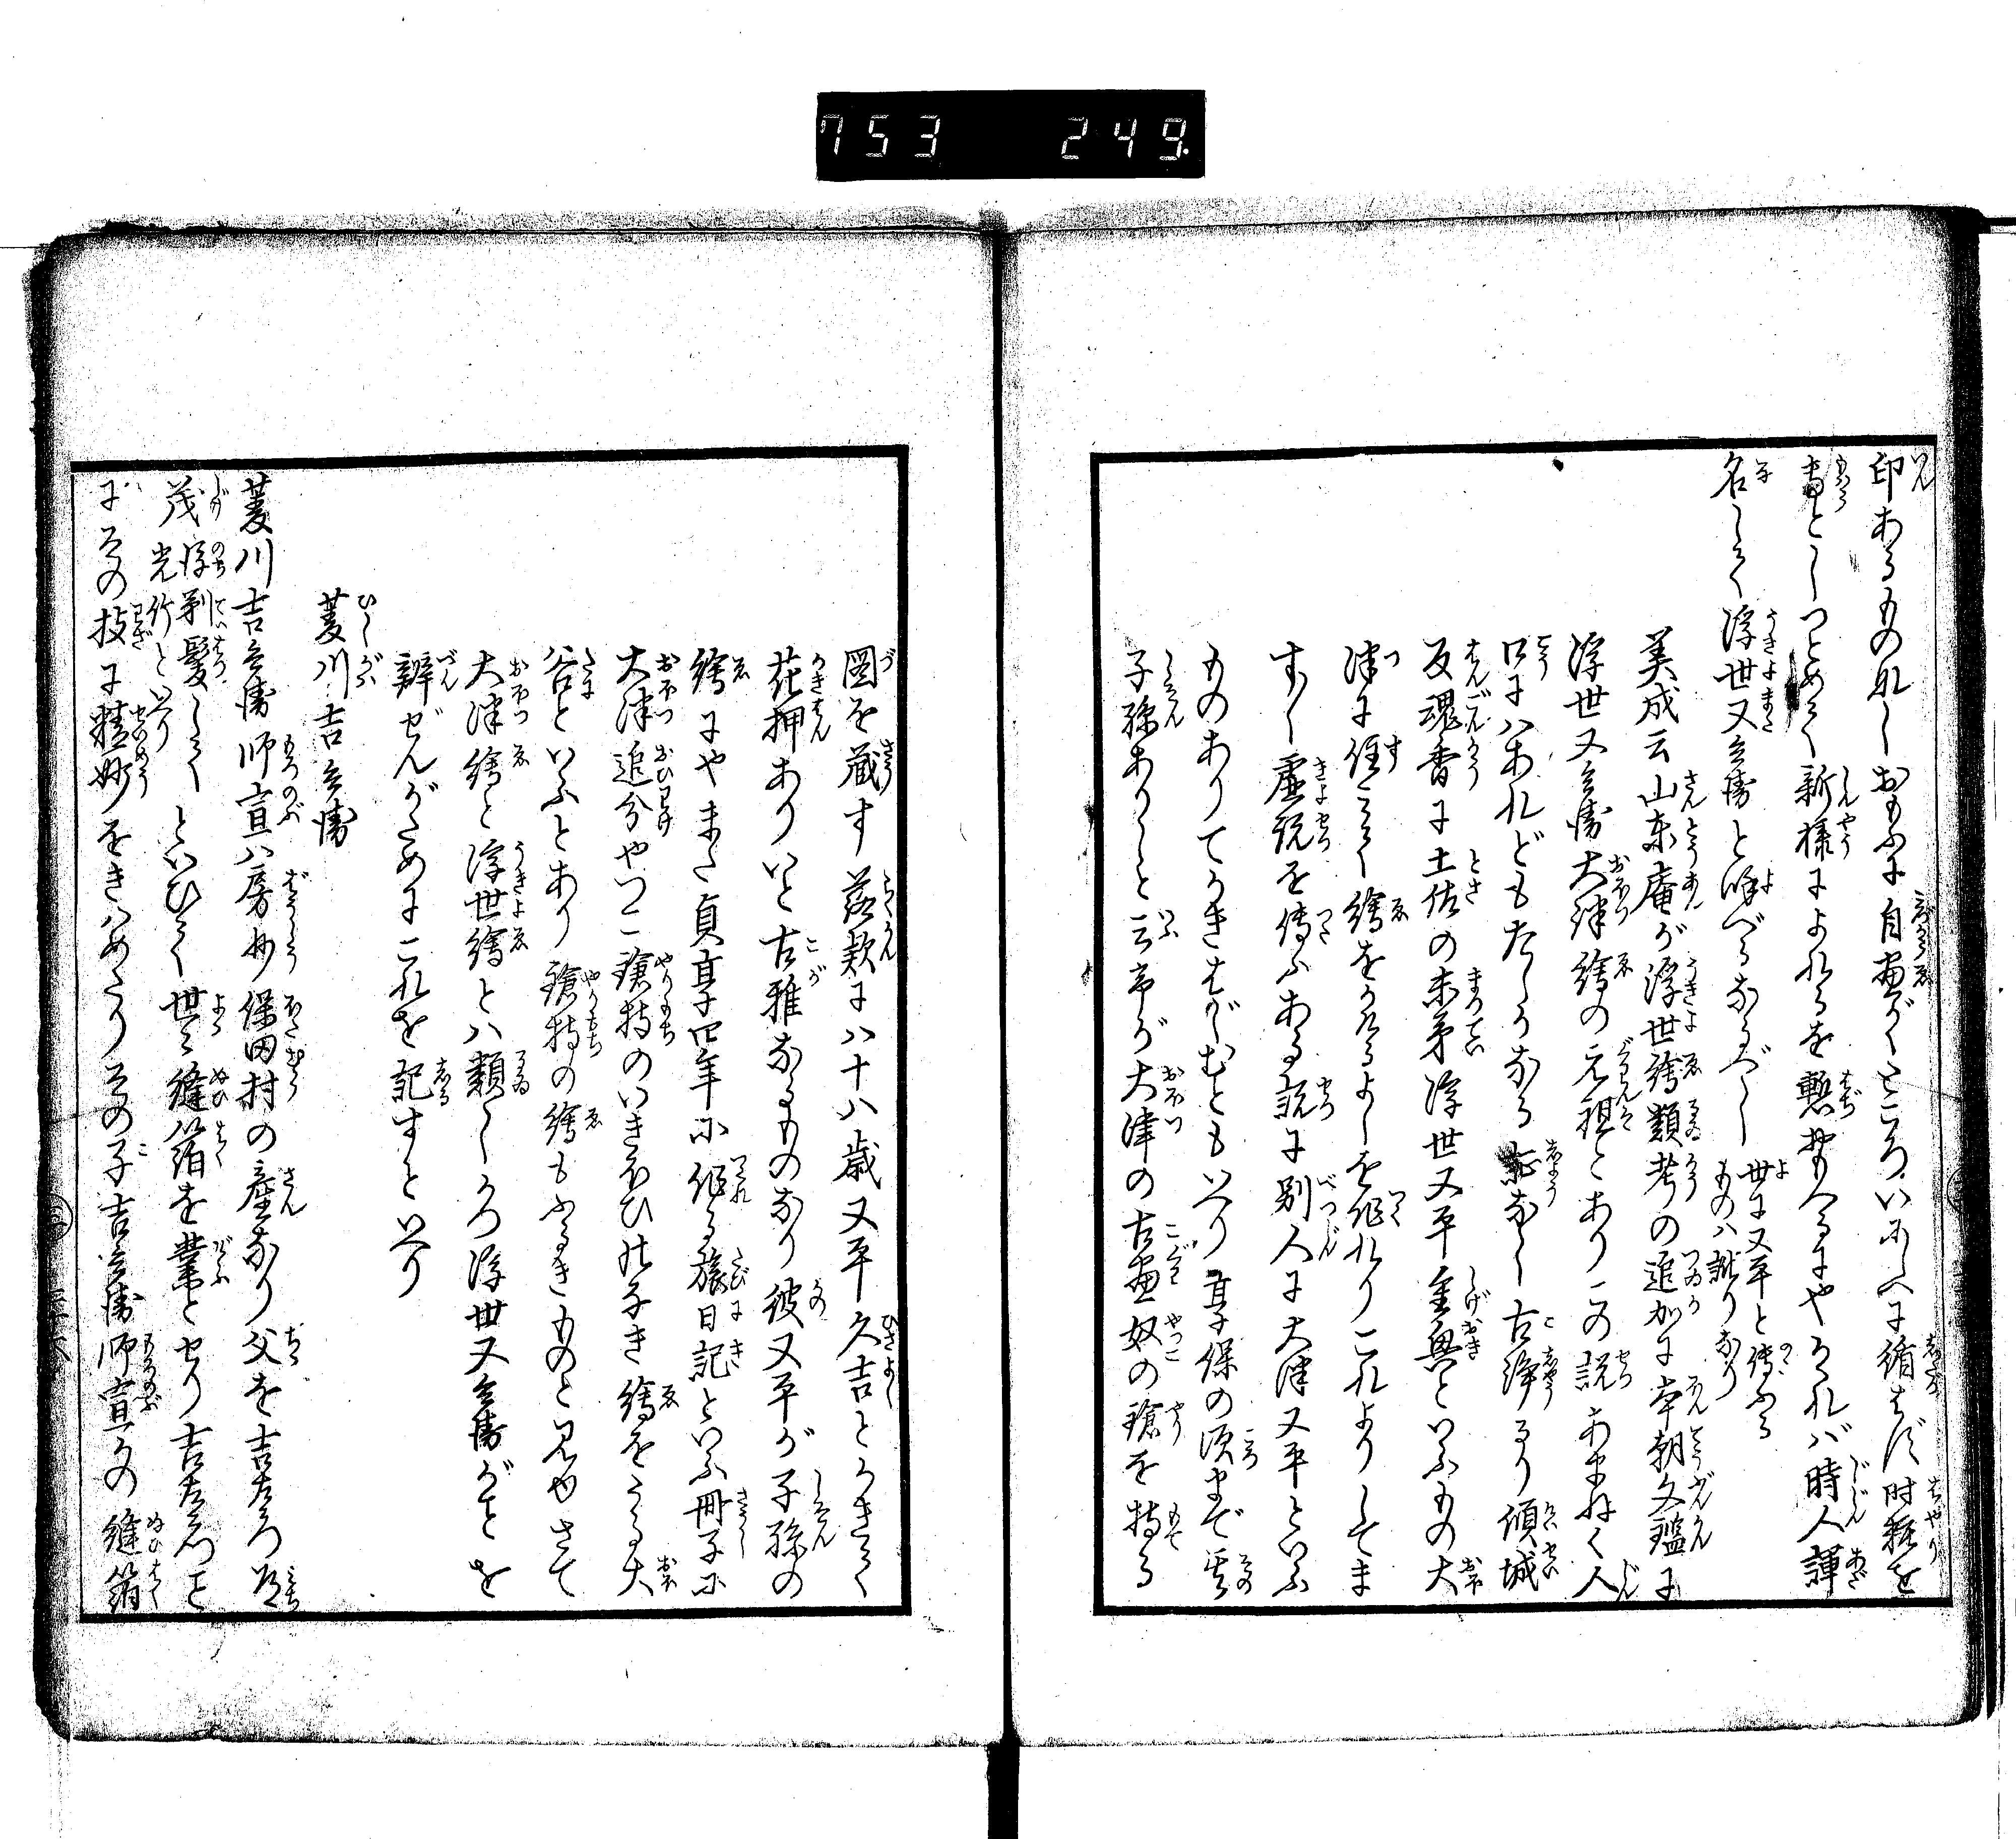 753 249
印あるものなしおもふに自畫がくところいにしへに循はず時粧を
専としつとめて新様によれるを慙おもへるにやされバ時人諢
名して浮世又兵衛と呼べるなるべし 世に又平と傳ふる
ものハ訛りなり
美成云山東庵が浮世繪類考の追加に本朝文鑑に
浮世又兵衛大津繪の元祖とありこの説あまねく人
口にハあれどもたしかなる証なし古浄るり傾城
反魂香に土佐の末弟浮世又平重興といふもの大
津に住して繪をかけるよしを作れりこれよりしてま
すし虚説を傳ふある説に別人に大津又平といふ
ものありてかきはじむともいへり享保の頃まで其
子孫ありしと云予が大津の古畫奴の鎗を持る
圖を蔵す落款に八十八歳又平久吉とかきて
花押ありいと古雅なるものなり彼又平が子孫の
繪にやまた貞享四年に作れる旅日記といふ冊子に
大津追分やつこ鎗持のいきほひ此なき繪をうる大
谷といふとあり鎗持の繪もふるきものと見ゆさて
大津繪と浮世繪とハ類しかつ浮世又兵衛がことを
辨ぜんがためにこれを記すといへり
菱川吉兵衛
菱川吉兵衛師宣ハ房州保田村の産なり父を吉左衛門道
茂 後剃髪して
光竹といへり といひて世々縫箔を業とせり吉左衛門こと
にその技に精妙をきハめたりその子吉兵衛師宣かの縫箔